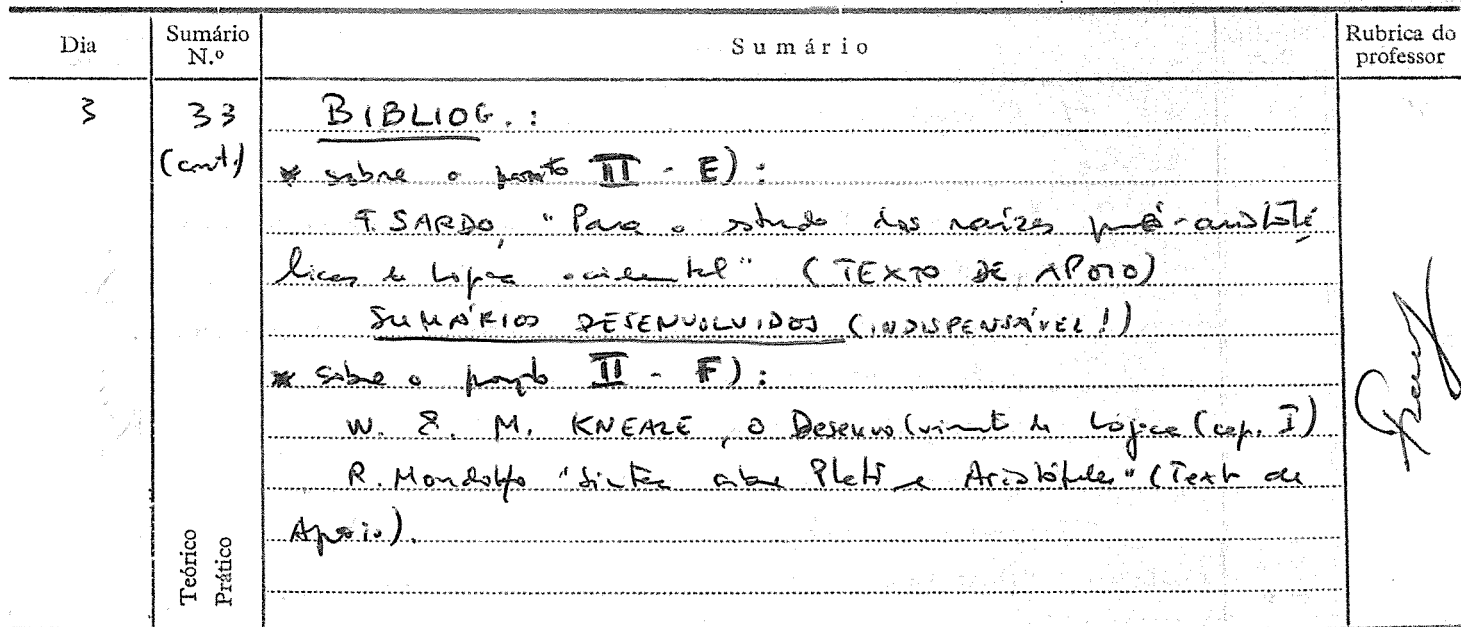 Dia
Sumário N.º
Sumário
Rubrica do professor
3
33
(cont.)
BIBLIOG.:
* sobre o ponto II - E):
F. SARDO, "Para o estudo das raízes pré-aristoté
licas da Lógica ocidental" (TEXTO DE APOIO)
SUMÁRIOS DESENVOLVIDOS (INDISPENSÁVEL!)
* sobre o ponto II - F):
W. & M. KNEALE, O Desenvolvimento da Lógica (cap. I)
R. Mondolfo "Síntese sobre Platão e Aristóteles" (Texto de
Apoio).
Teórico
Prático